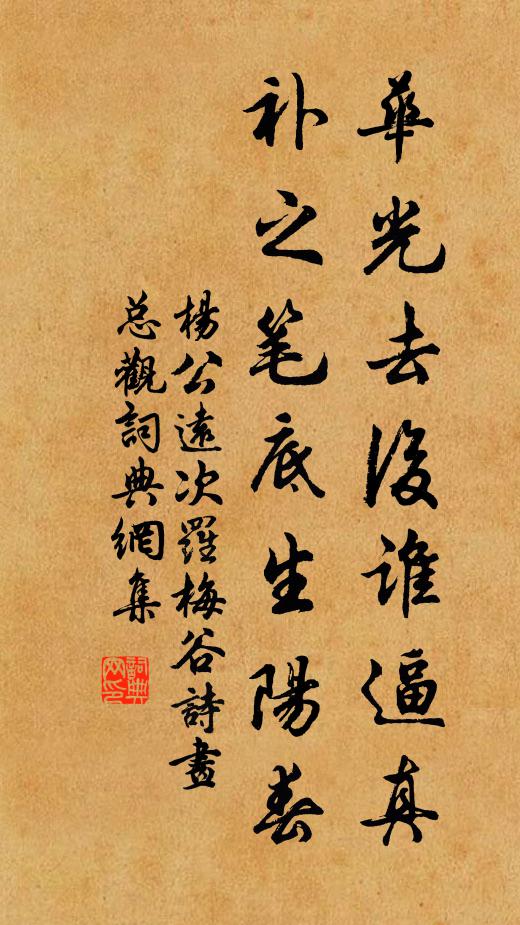 華光去後谁逼真
补之笔底生陽春
楊公遠次羅梅谷詩畫
总觀詞典網集
詞典网印